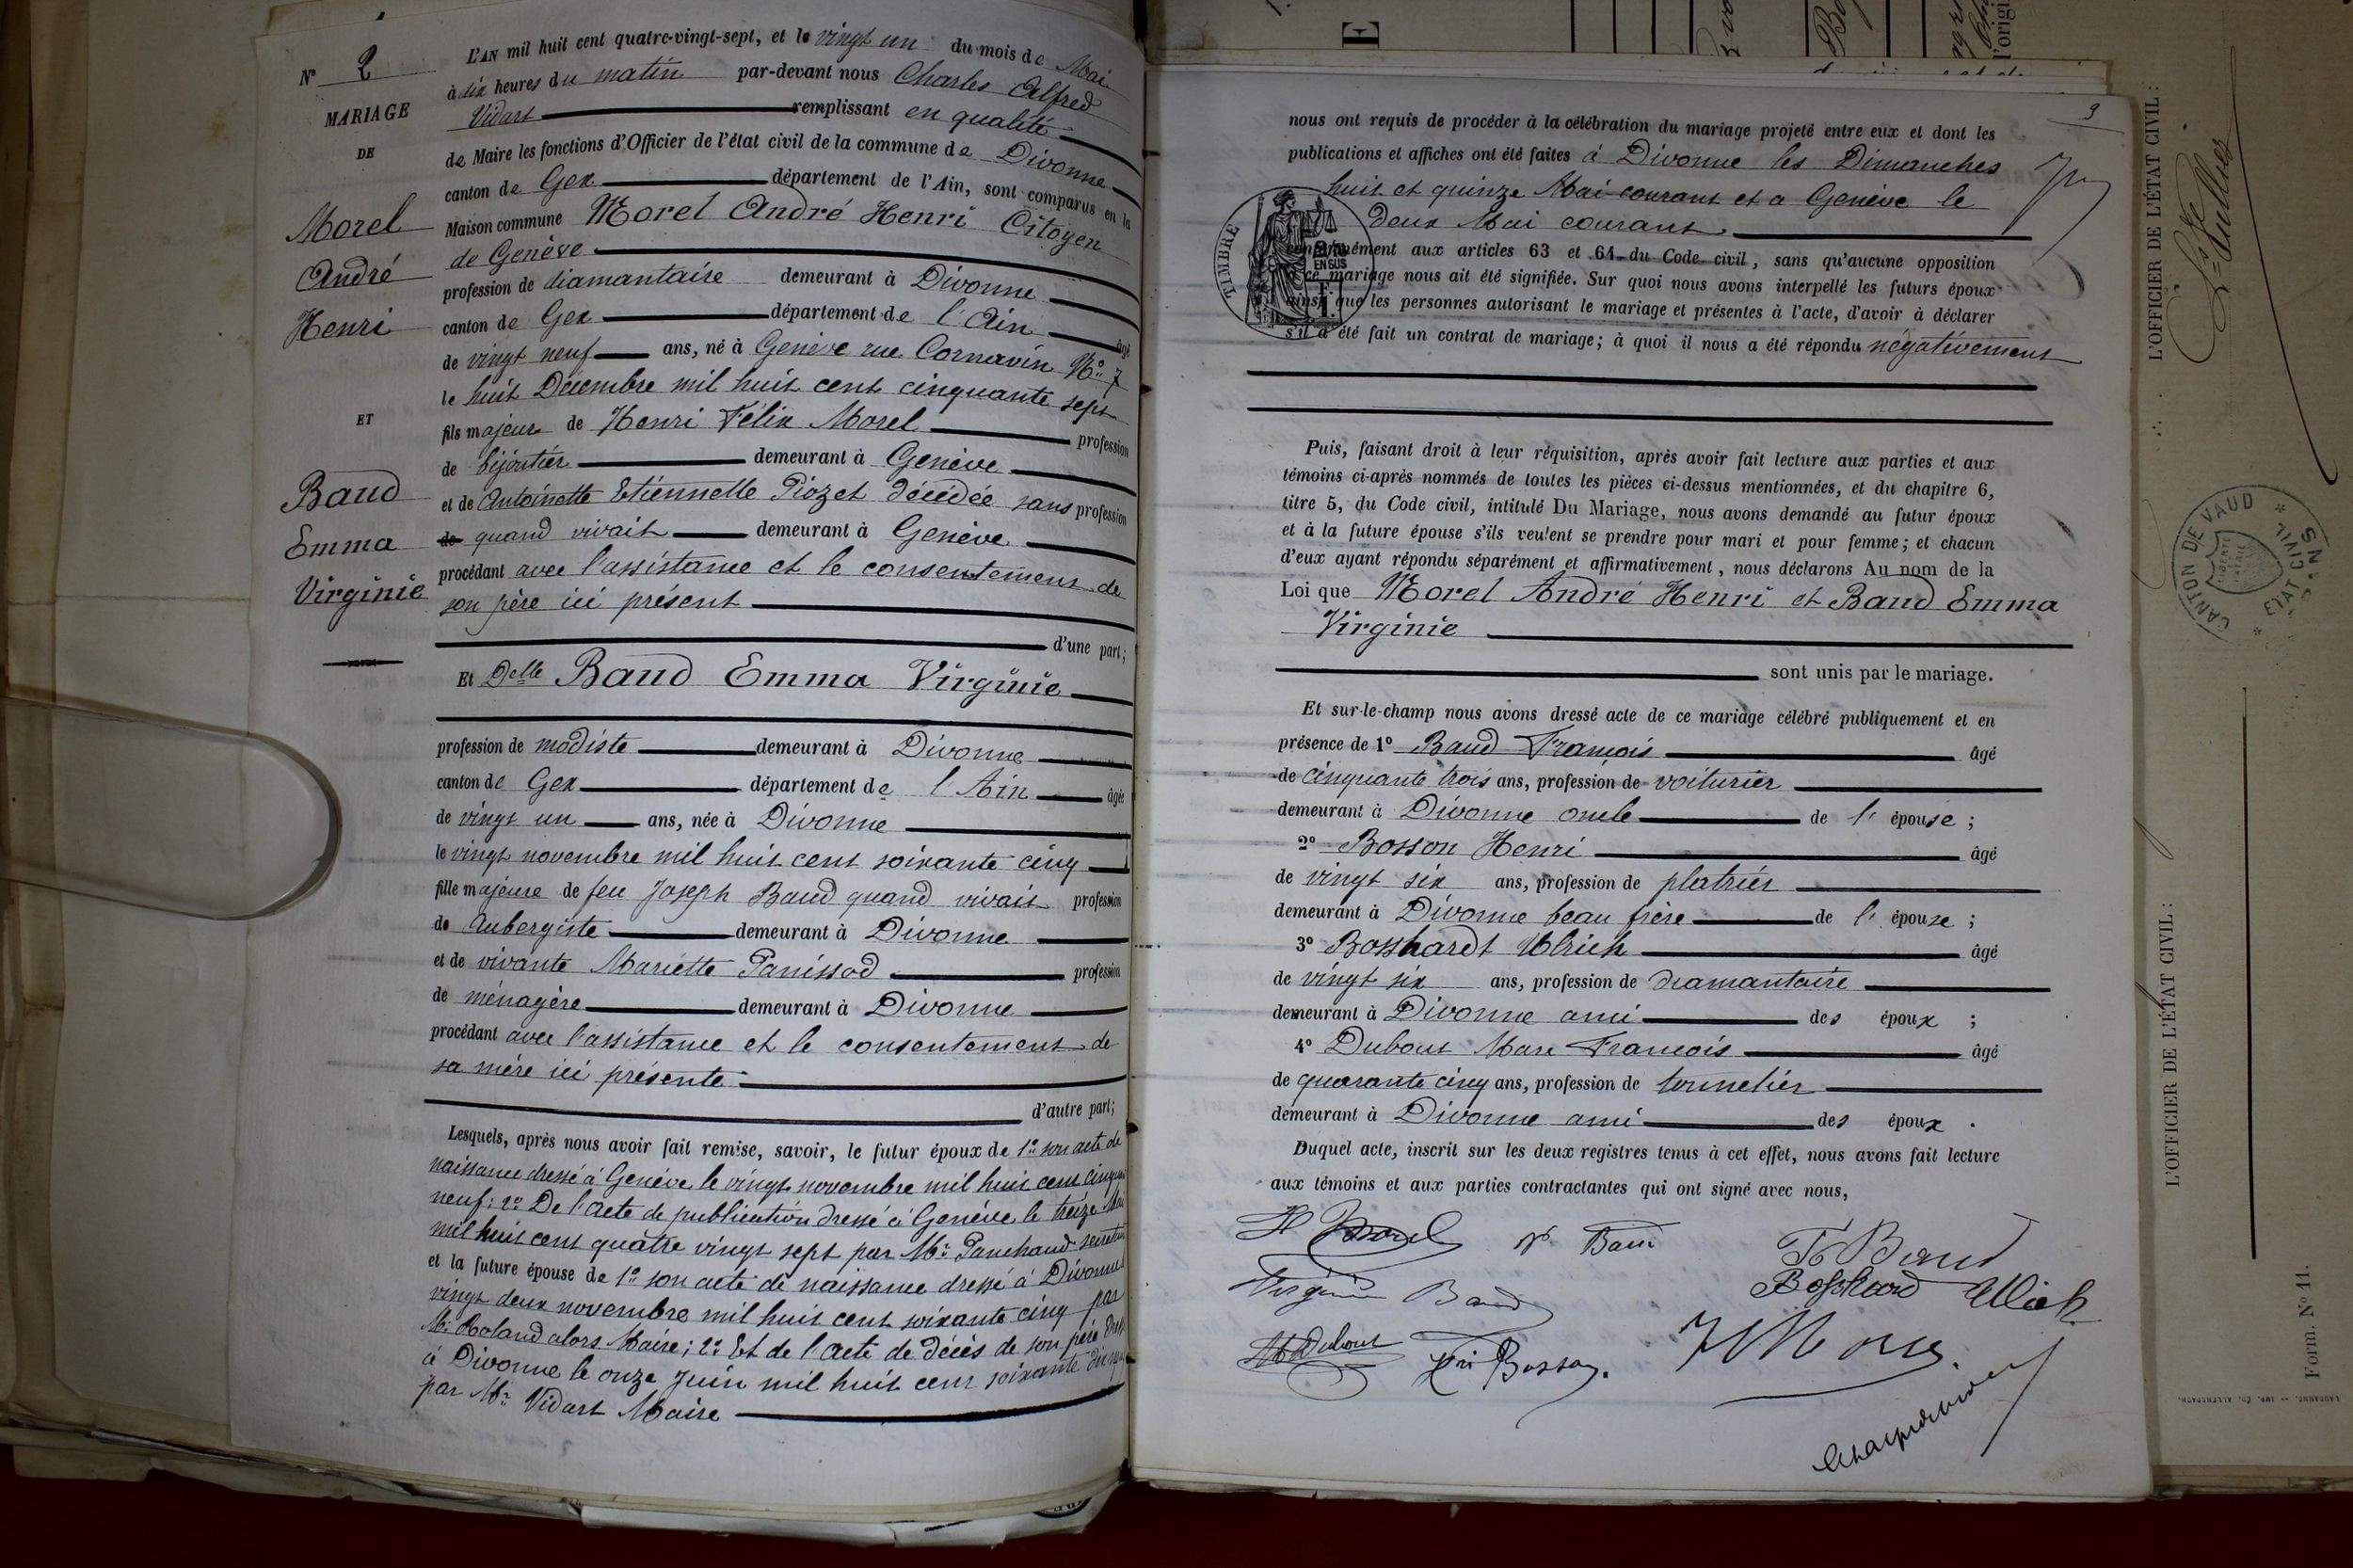 N° 2
MARIAGE
DE
Morel
André
Henri
ET
Baud
Emma
Virginie
L'AN mil huit cent quatre-vingt-sept, et le vingt un du mois de Mai
à dix heures du matin par-devant nous Charles Alfred
Vidart remplissant en qualité
de Maire les fonctions d'Officier de l'état civil de la commune de Divonne
canton de Gex département de l'Ain, sont comparus en la
Maison commune Morel André Henri Citoyen
de Genève
profession de diamantaire demeurant à Divonne
canton de Gex département de l'Ain âgé
de vingt neuf ans, né à Genève rue Cornavin N° 7
le huit Décembre mil huit cent cinquante sept
fils majeur de Henri Félix Morel profession
de bijoutier demeurant à Genève
et de Antoinette Etiennette Piozet décédée sans profession
de quand vivait demeurant à Genève
procédant avec l'assistance et le consentement de
son père ici présent
d'une part;
Et Delle Baud Emma Virginie
profession de modiste demeurant à Divonne
canton de Gex département de l'Ain âgée
de vingt un ans, née à Divonne
le vingt novembre mil huit cent soixante cinq
fille majeure de feu Joseph Baud quand vivait profession
de Aubergiste demeurant à Divonne
et de vivante Mariette Panissod profession
de ménagère demeurant à Divonne
procédant avec l'assistance et le consentement de
sa mère ici présente
d'autre part;
Lesquels, après nous avoir fait remise, savoir, le futur époux de 1° son acte de
naissance dressé à Genève le vingt novembre mil huit cent
neuf; 2° De l'acte de publication dressé à Genève le treize Mai
mil huit cent quatre vingt sept par Mr Panchaud
et la future épouse de 1° son acte de naissance dressé à Divonne
vingt deux novembre mil huit cent soixante cinq par
Mr Roland alors Maire; 2° Et de l'acte de décès de son père
à Divonne le onze Juin mil huit cent soixante
par Mr Vidart Maire
3
nous ont requis de procéder à la célébration du mariage projeté entre eux et dont les
publications et affiches ont été faites à Divonne les Dimanches
huit et quinze Mai courant et a Genève le
deux Mai courant
TIMBRE
EN SUS
conformément aux articles 63 et 64 du Code civil, sans qu'aucune opposition
à ce mariage nous ait été signifiée. Sur quoi nous avons interpellé les futurs époux
ainsi que les personnes autorisant le mariage et présentes à l'acte, d'avoir à déclarer
s'il a été fait un contrat de mariage; à quoi il nous a été répondu négativement
Puis, faisant droit à leur réquisition, après avoir fait lecture aux parties et aux
témoins ci-après nommés de toutes les pièces ci-dessus mentionnées, et du chapitre 6,
titre 5, du Code civil, intitulé Du Mariage, nous avons demandé au futur époux
et à la future épouse s'ils veulent se prendre pour mari et pour femme; et chacun
d'eux ayant répondu séparément et affirmativement, nous déclarons Au nom de la
Loi que Morel André Henri et Baud Emma
Virginie
sont unis par le mariage.
Et sur-le-champ nous avons dressé acte de ce mariage célébré publiquement et en
présence de 1° Baud François âgé
de cinquante trois ans, profession de voiturier
demeurant à Divonne oncle de l'épouse;
2° Bosson Henri âgé
de vingt six ans, profession de platrier
demeurant à Divonne beau frère de l'épouse;
3° Bosshardt Ulrich âgé
de vingt six ans, profession de diamantaire
demeurant à Divonne ami des époux;
4° Dubout Marc François âgé
de quarante cinq ans, profession de tonnelier
demeurant à Divonne ami des époux.
Duquel acte, inscrit sur les deux registres tenus à cet effet, nous avons fait lecture
aux témoins et aux parties contractantes qui ont signé avec nous,
H Morel
Baud
Fs Baud
Virginie Baud
Bosshard Ulrich
Dubout
Hri Bosson
L'OFFICIER DE L'ÉTAT CIVIL:
L'OFFICIER DE L'ÉTAT CIVIL:
CANTON DE VAUD
ETAT CIVIL
Form. N° 11.